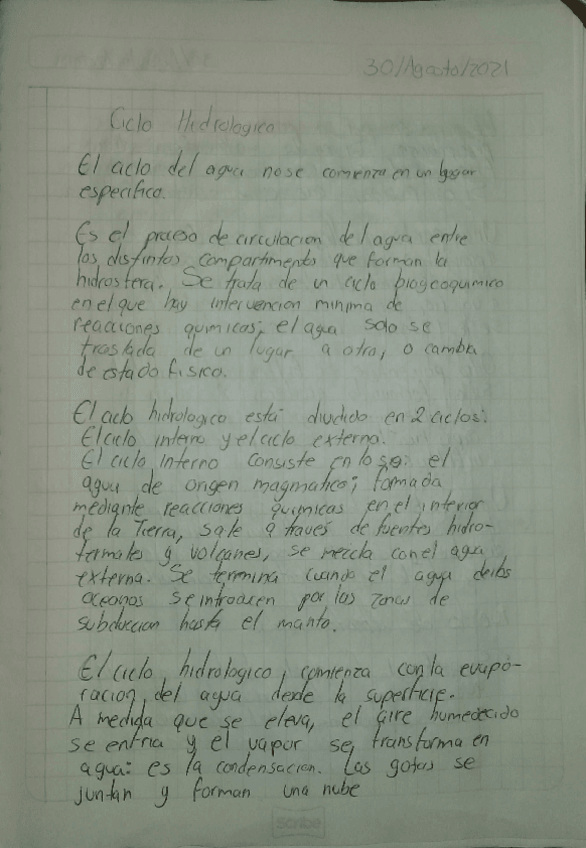 30/Agosto/2021
Ciclo Hidrologico
El ciclo del agua no se comienza en un lugar
especifico.
Es el proceso de circulacion del agua entre
los distintos compartimentos que forman la
hidrosfera. Se trata de un ciclo biogeoquimico
en el que hay intervencion minima de
reacciones quimicas, el agua solo se
traslada de un lugar a otro, o cambia
de estado fisico.
El ciclo hidrologico está dividido en 2 ciclos:
El ciclo interno y el ciclo externo.
El ciclo Interno consiste en lo sig: el
agua de origen magmatico; formada
mediante reacciones quimicas en el interior
de la Tierra, sale a través de fuentes hidro-
termales y volcanes, se mezcla con el agua
externa. Se termina cuando el agua de los
oceanos se introducen por las zonas de
subduccion hasta el manto.
El ciclo hidrologico, comienza con la evapo-
racion del agua desde la superficie.
A medida que se eleva, el aire humedecido
se enfria y el vapor se transforma en
agua: es la condensacion. Las gotas se
juntan y forman una nube
Scribe